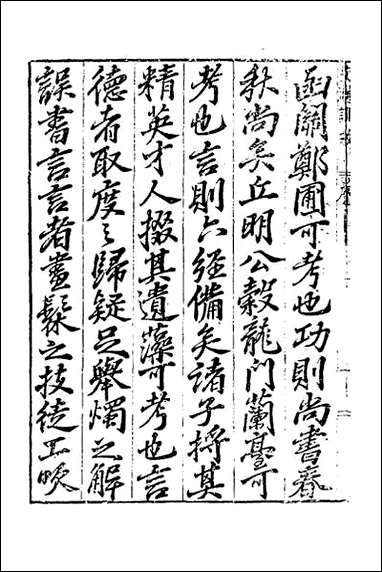 函關鄭圃可考也功則尚書春
秋尚矣丘明公穀龍門蘭臺可
考也言則六經備矣諸子捋其
精英才人掇其遺藻可考也言
德者取度之歸疑足舉燭之解
誤書言言者畫鬆之技徒工吹